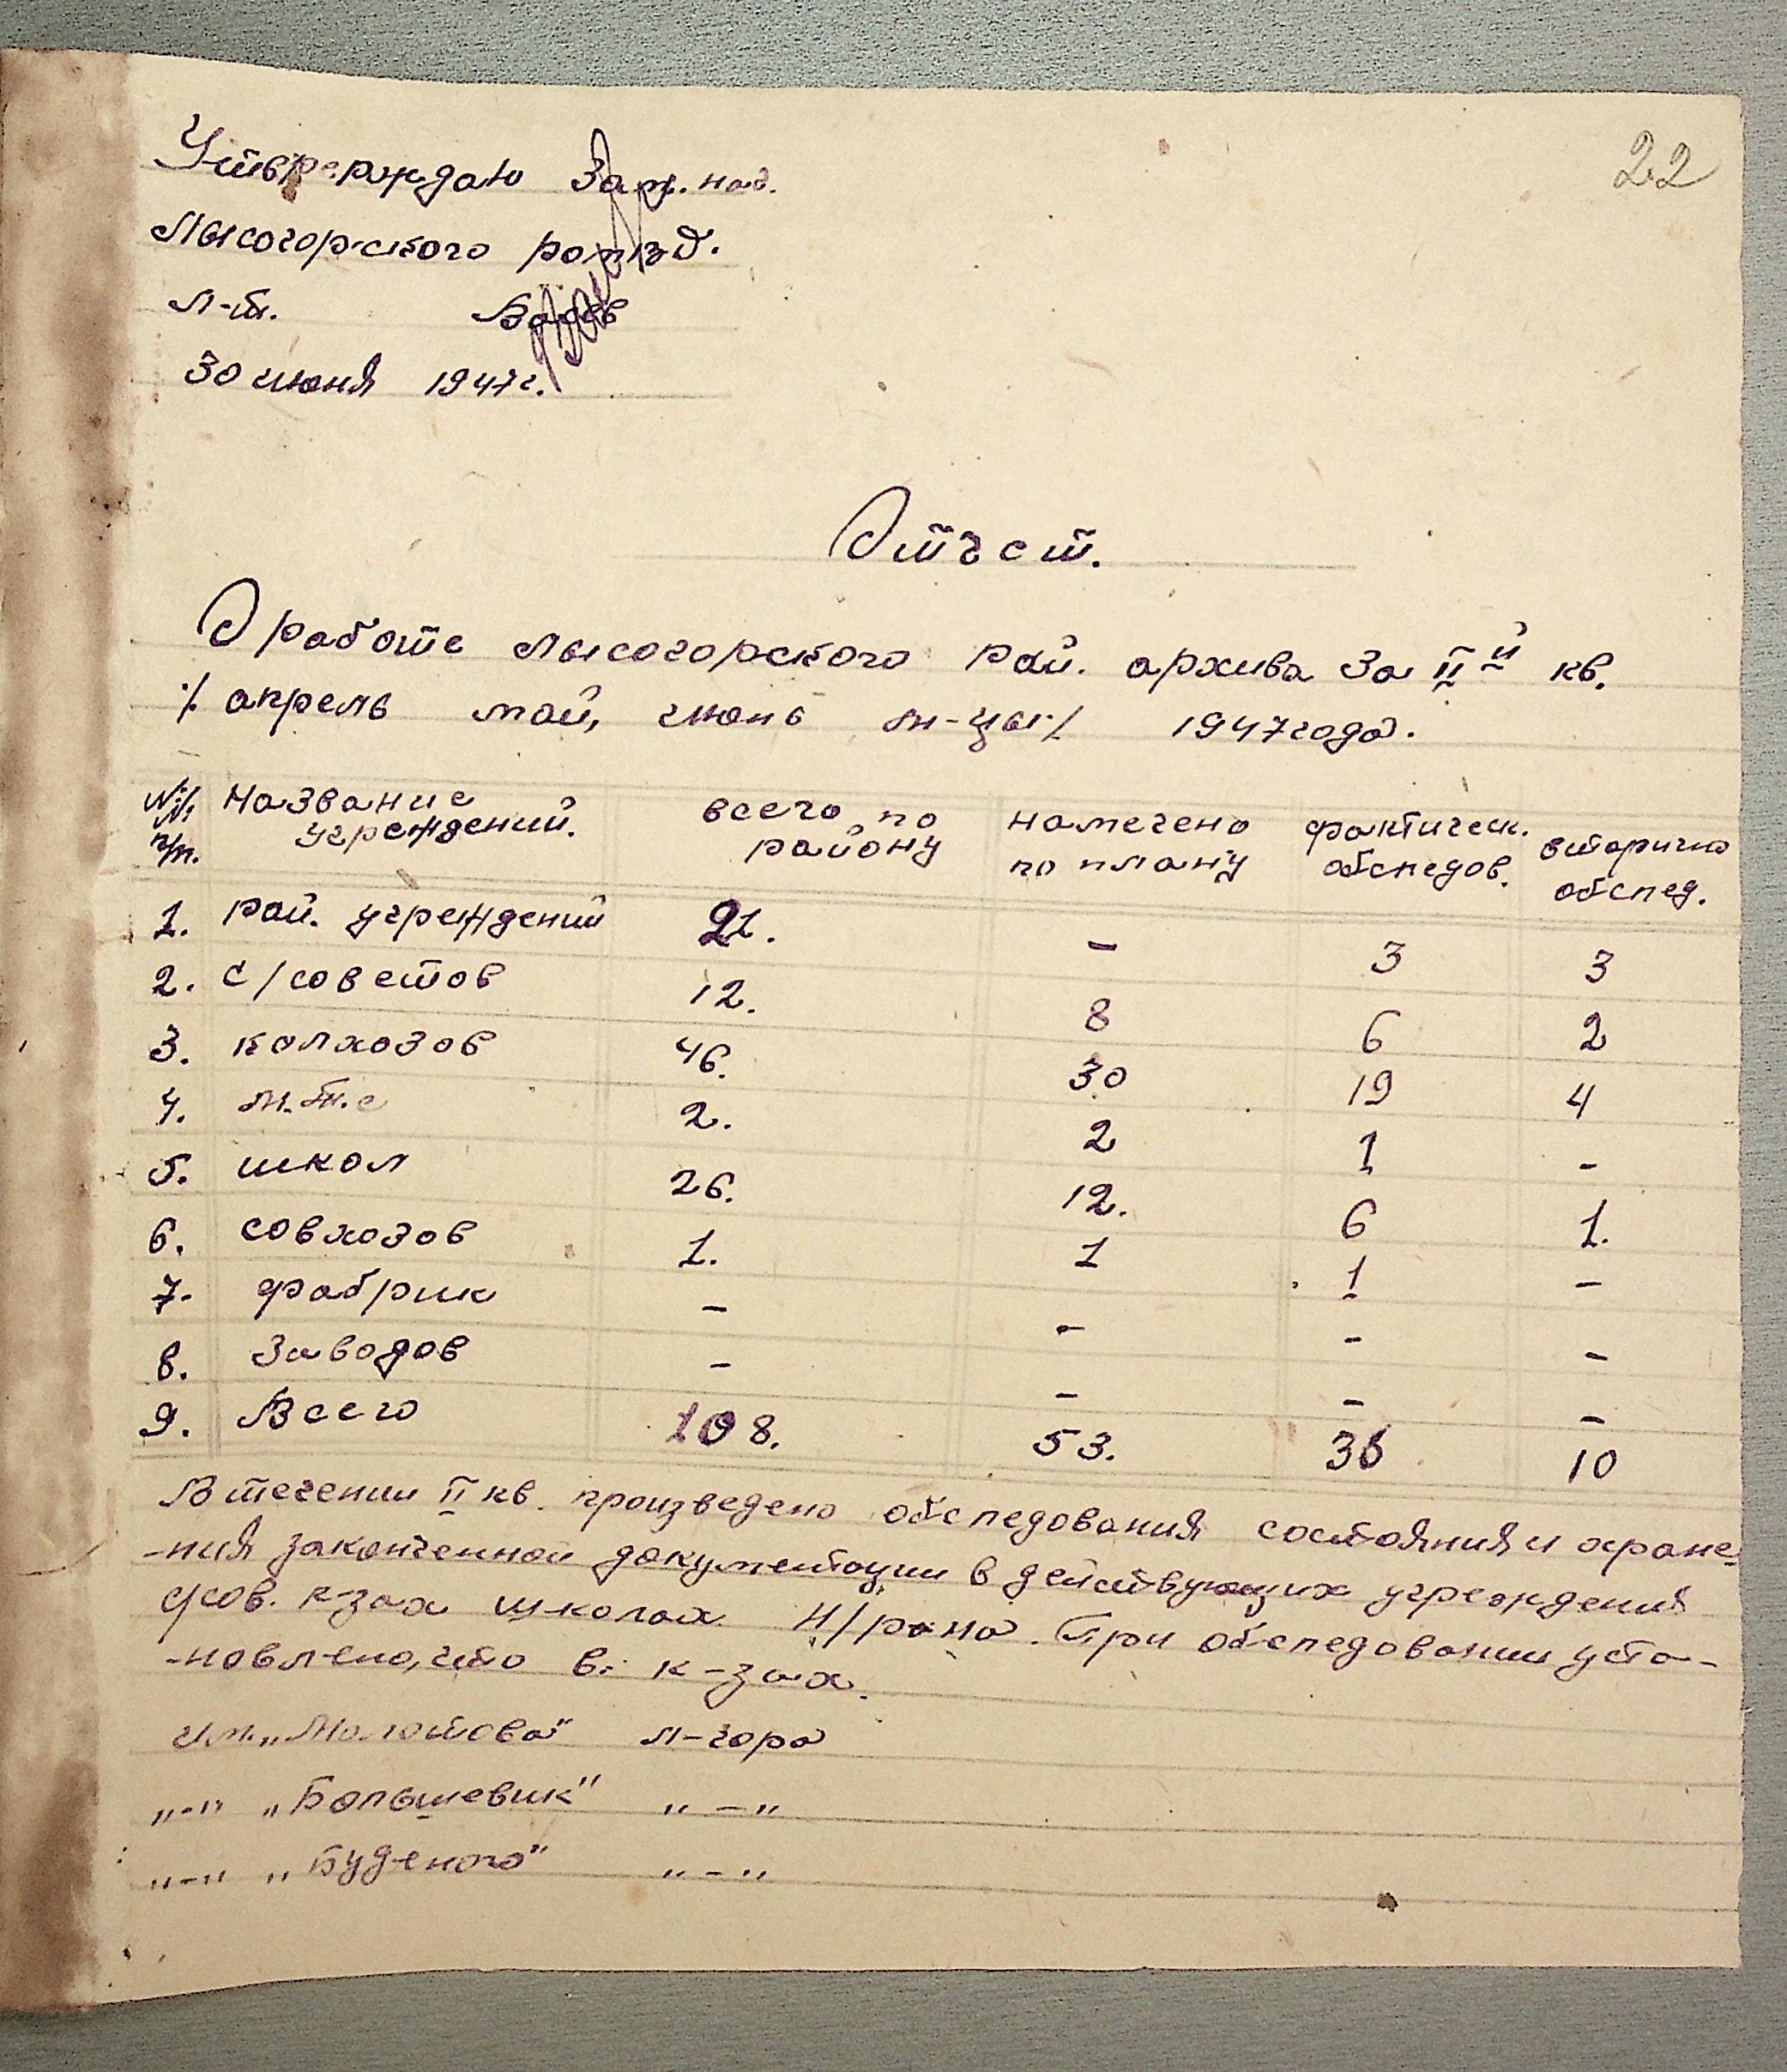 22
Утверждаю Зам. нач.
Лысогорского ро мвд.
л-т.
30 июня 1947г.
Отчет.
О работе Лысогорского рай. архива за II й кв.
/ апрель май, июнь м-цы / 1947 года.
№/№ п/п. Название учреждений. всего по району намечено по плану фактическ. обследов. вторично обслед.
1. рай. учреждений 21. - 3 3
2. с/советов 12. 8 6 2
3. колхозов 46. 30 19 4
4. м.т.с 2. 2 1 -
5. школ 26. 12. 6 1.
6. совхозов 1. 1 1 -
7. фабрик - - - -
8. заводов - - - -
9. Всего 108. 53. 36 10
В течении II кв. произведено обследования состояния и хране-
-ния законченной документации в действующих учреждения
с/сов. к-зах школах н/рана. При обследовании уста-
-новлено, что в: к-зах.
им. „Молотова" л-гора
„-" „Большевик" „-„
„-" „Буденого" „-„